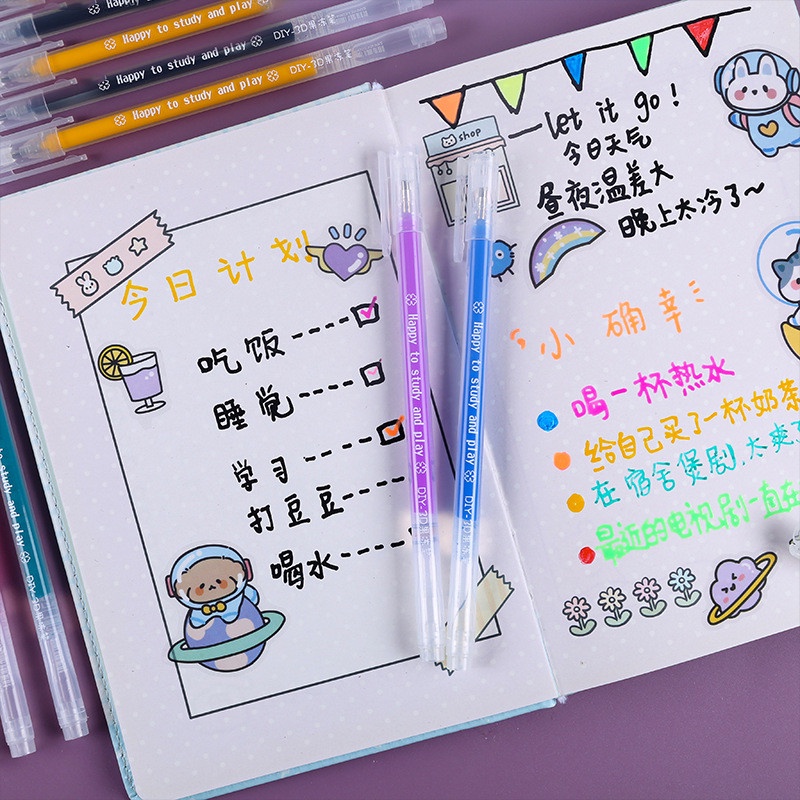 Happy to study and play
Happy to study and play DIY-3D果冻笔
Happy to study and play DIY-3D果冻笔
Happy to study and play DIY-3D果冻笔
今日计划
吃饭
睡觉
学习
打豆豆
喝水
Happy to study and play DIY-3D
Happy to study and play DIY-3D
shop
let it go!
今日天气
昼夜温差大
晚上太冷了~
小确幸
喝一杯热水
给自己买了一杯奶茶
在宿舍煲剧,太爽
最近的电视剧一直在
to study and play